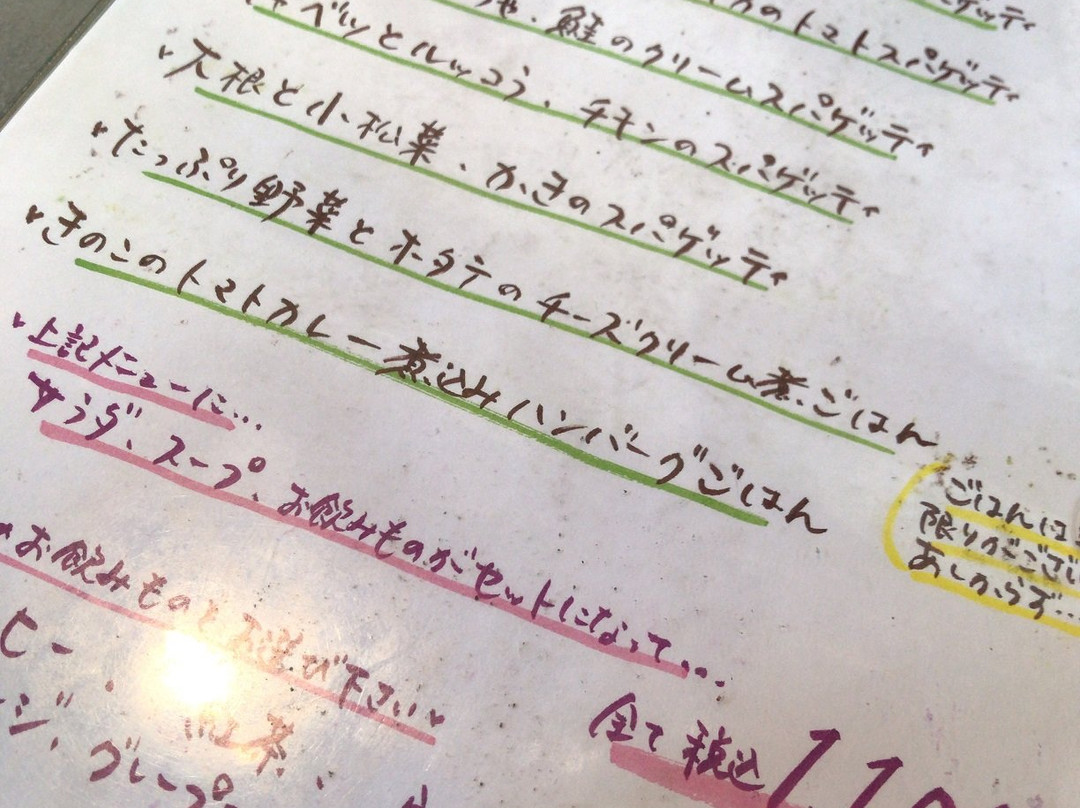 ゲッティ
のトマトスパゲッティ
、鮭のクリームスパゲッティ
ベツとルッコラ、チキンのスパゲッティ
大根と小松菜、かきのスパゲッティ
たっぷり野菜とホタテのチーズクリーム煮ごはん
きのこのトマトカレー煮込みハンバーグごはん
ごはんは
限りがござい
あしからず…
上記メニューに…
サラダ、スープ、お飲みものがセットになって…
お飲みものをお選び下さい
ヒー、紅茶、
ジ、グレープ
全て税込